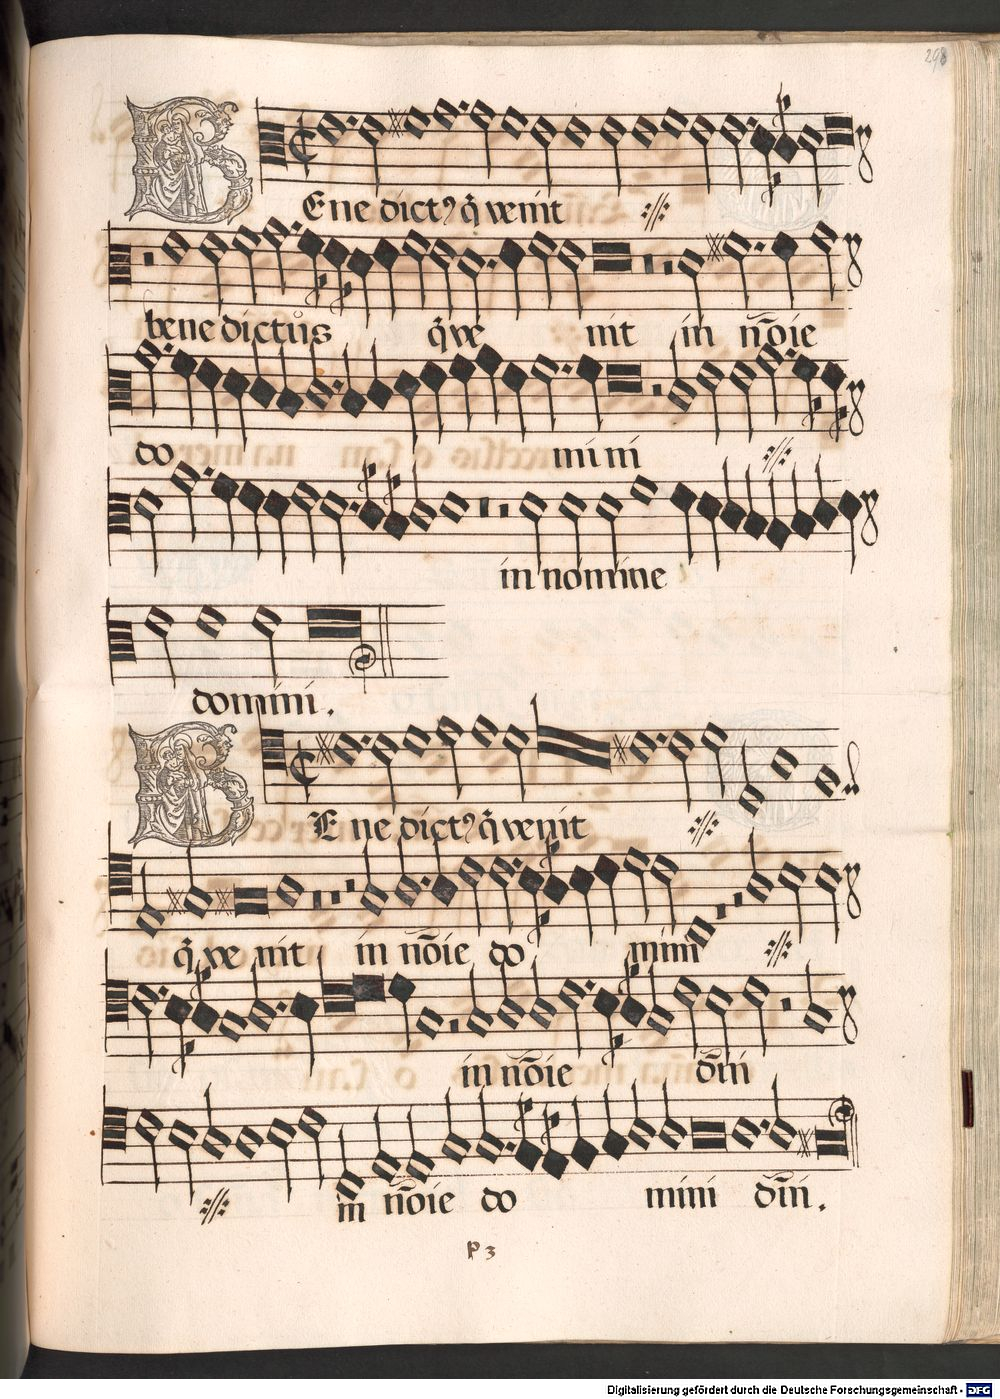 298
BEne dictꝰ q̃ venit ∶//∶
bene dictus q̃ ve nit in nõie
do mini ∶//∶
in nomine
domini.
BE ne dictꝰ q̃ venit ∶//∶
q̃ ve nit in nõie do mini ∶//∶
in nõie dñi
∶//∶ in nõie do mini dñi.
P 3
Digitalisierung gefördert durch die Deutsche Forschungsgemeinschaft - DFG